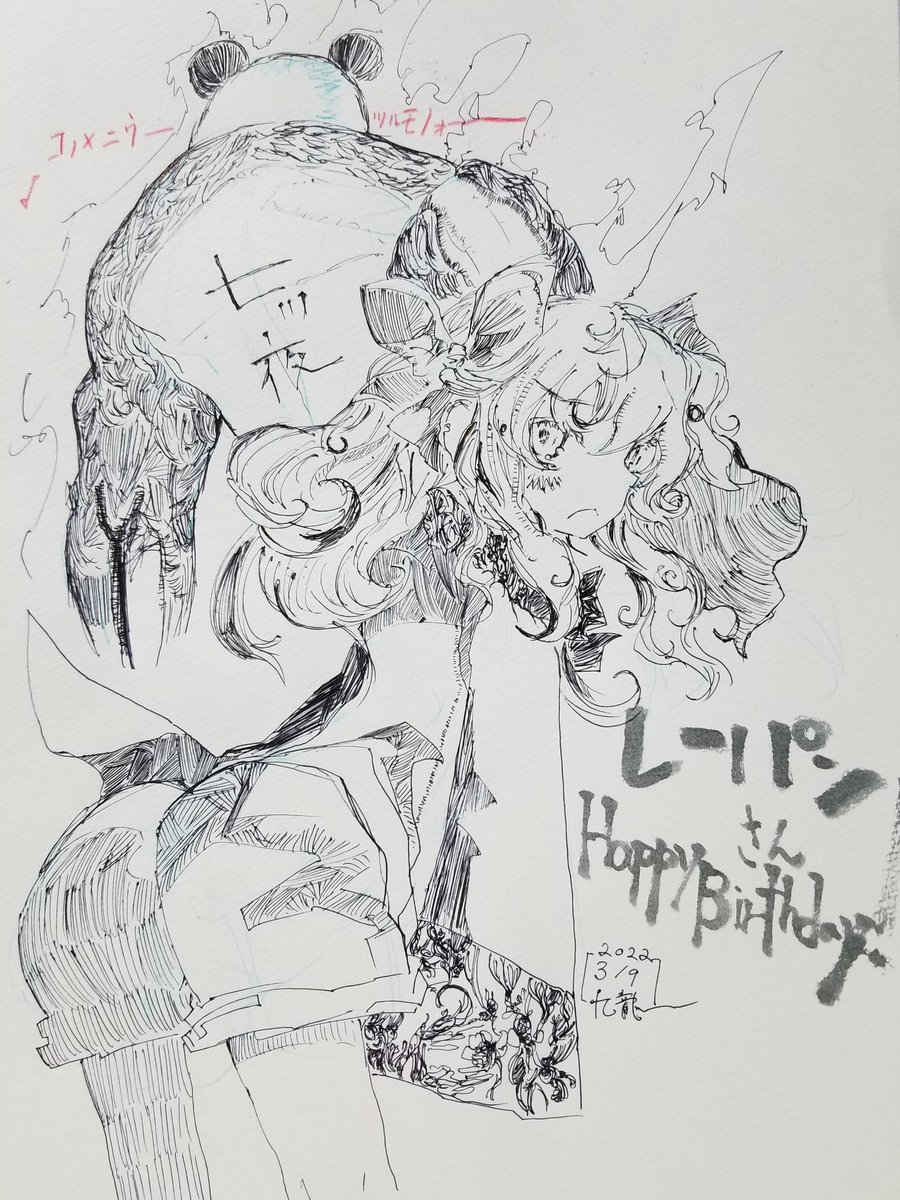 コノメニウー
ツルモノォー
七ツ
夜
レーパン
さん
Happy
Birthday
2022
3/9
九龍